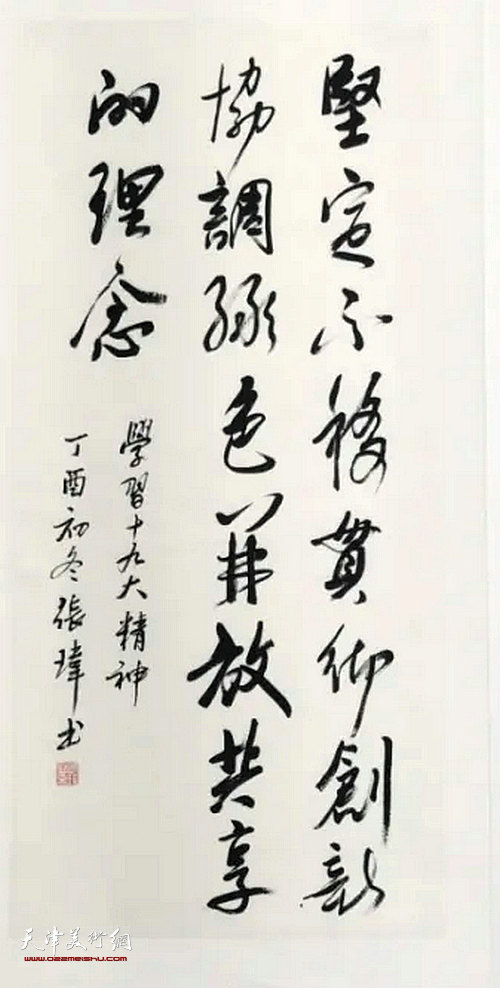 堅定不移貫彻創新
協調綠色開放共享
的理念
學習十九大精神
丁酉初冬張瑋书
天津美術網
www.022meishu.com